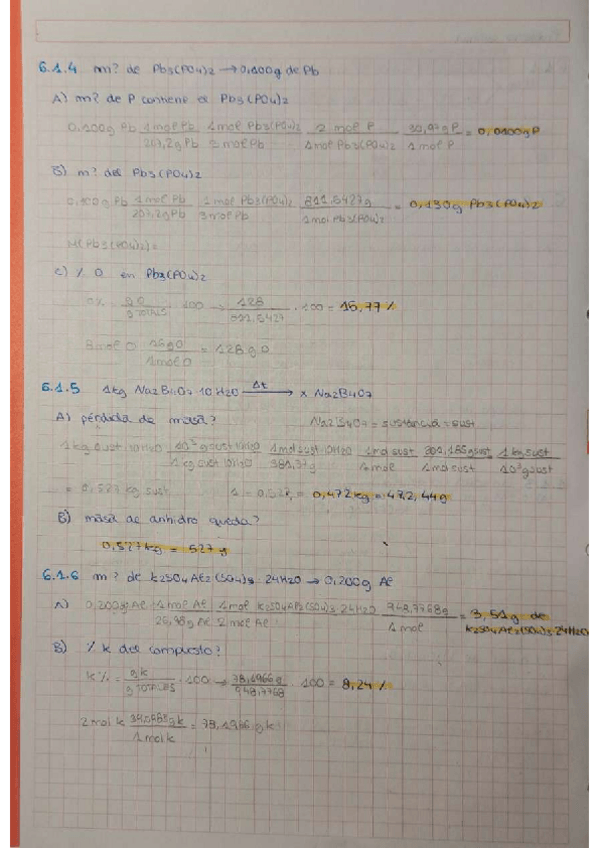 6.1.4 m? de Pb3(PO4)2 → 0,100g de Pb
A) m? de P contiene el Pb3(PO4)2
0.100g Pb 1 mol Pb / 207,2g Pb 1 mol Pb3(PO4)2 / 3 mol Pb 2 mol P / 1 mol Pb3(PO4)2 30,97g P / 1 mol P = 0,0100g P
B) m? del Pb3(PO4)2
0,100g Pb 1 mol Pb / 207,2g Pb 1 mol Pb3(PO4)2 / 3 mol Pb 811.5427g / 1 mol Pb3(PO4)2 = 0,130g Pb3(PO4)2
M(Pb3(PO4)2)=
C) % O en Pb3(PO4)2
O% = gO / g totales · 100 → 128 / 811.5427 · 100 = 15,77 %
8 mol O 16g O / 1 mol O = 128 g O
6.1.5 1kg Na2B4O7 10H2O Δt → x Na2B4O7
A) pérdida de masa? Na2B4O7 = sustancia = sust
1 kg sust 10H2O 10³g sust 10H2O / 1 kg sust 10H2O 1 mol sust 10H2O / 381,37g 1 mol sust / 1 mol 201,185g sust / 1 mol sust 1 kg sust / 10³g sust
= 0,527 kg sust 1 - 0,527 = 0,472 kg = 472,44g
B) masa de anhidro queda?
0,527kg = 527 g
6.1.6 m? de K2SO4Al2(SO4)3·24H2O → 0,200g Al
A) 0,200g Al 1 mol Al / 26,98g Al 1 mol K2SO4Al2(SO4)3·24H2O / 2 mol Al 948,7768g / 1 mol = 3,51g de K2SO4Al2(SO4)3·24H2O
B) % K del compuesto?
K% = gK / g totales · 100 → 78,1966g / 948,7768 · 100 = 8,24 %
2 mol K 39,0983g K / 1 mol K = 78,1966 g K